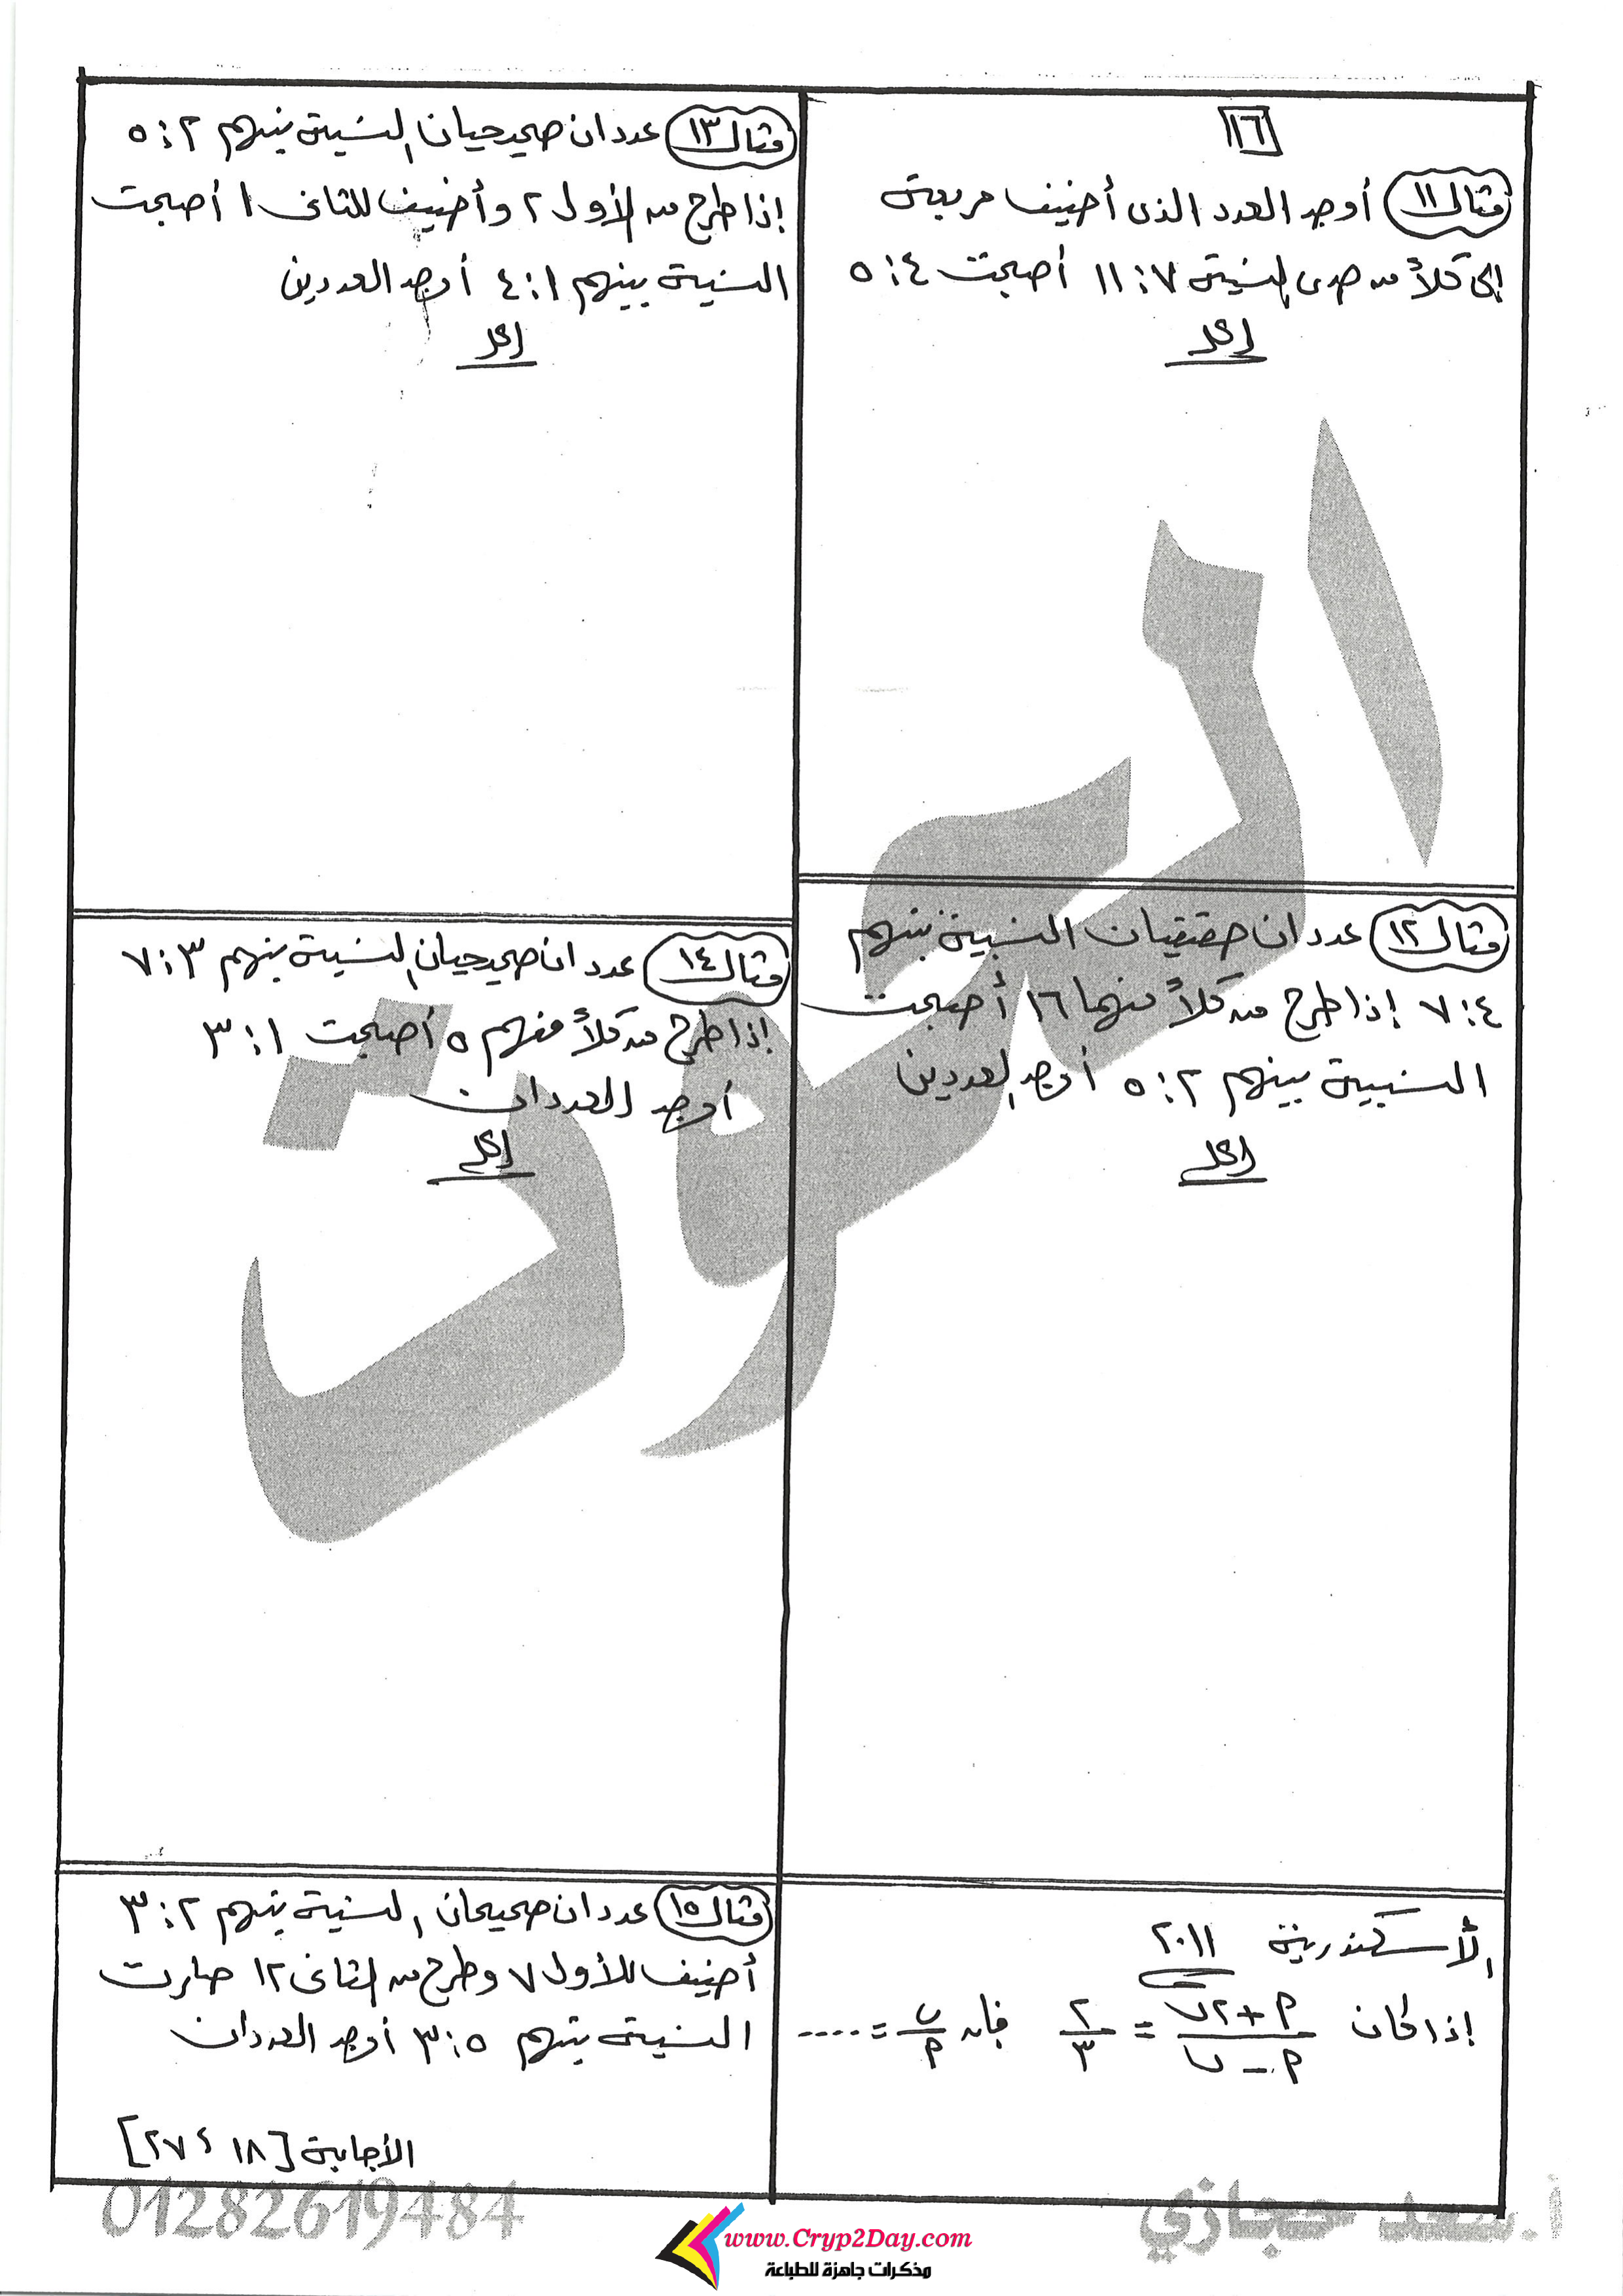 ١٦
مثال ١١ أوجد العدد الذى أضيف مربعه
إلى كلاً من حدى النسبة ٧ : ١١ أصبحت ٤ : ٥
الحل
مثال ١٢ عددان حقيقيان النسبة بينهم
٤ : ٧ إذا طرح من كلاً منهما ١٦ أصبحت
النسبة بينهم ٢ : ٥ أوجد العددين
الحل
الأسكندرية ٢٠١١
إذا كان \frac{م + ٢ب}{م - ب} = \frac{٢}{٣} فإن \frac{ب}{م} = ....
مثال ١٣ عددان صحيحيان النسبة بينهم ٢ : ٥
إذا طرح من الأول ٢ وأضيف للثانى ١ أصبحت
النسبة بينهم ١ : ٤ أوجد العددين
الحل
مثال ١٤ عددان صحيحيان النسبة بينهم ٣ : ٧
إذا طرح من كلاً منهم ٥ أصبحت ١ : ٣
أوجد العددان
الحل
مثال ١٥ عددان صحيحان النسبة بينهم ٢ : ٣
أضيف للأول ٧ وطرح من الثانى ١٢ صارت
النسبة بينهم ٥ : ٣ أوجد العددان
الأجابة [١٨ ، ٢٧]
العون
أ.سعد حجازي
01282619484
www.Cryp2Day.com
مذكرات جاهزة للطباعة